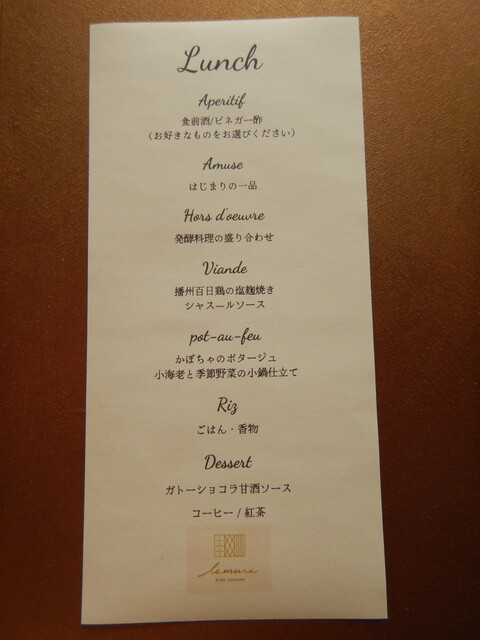 Lunch
Aperitif
食前酒/ビネガー酢
（お好きなものをお選びください）
Amuse
はじまりの一品
Hors d'oeuvre
発酵料理の盛り合わせ
Viande
播州百日鶏の塩麹焼き
シャスールソース
pot-au-feu
かぼちゃのポタージュ
小海老と季節野菜の小鍋仕立て
Riz
ごはん・香物
Dessert
ガトーショコラ甘酒ソース
コーヒー / 紅茶